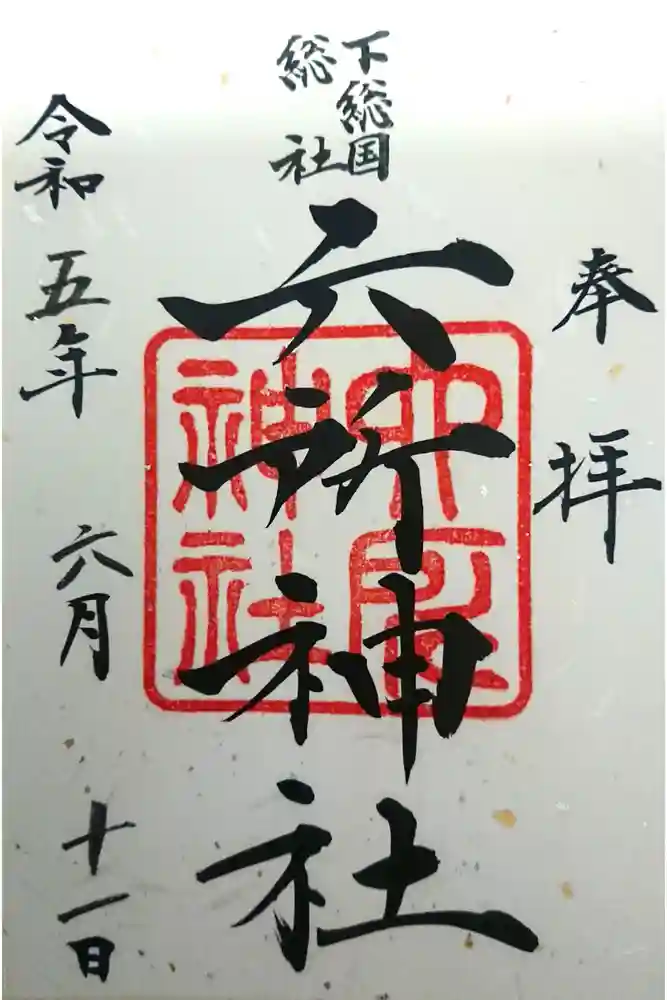 奉拝
下総国
総社
六所神社
六所神社
令和五年六月十一日